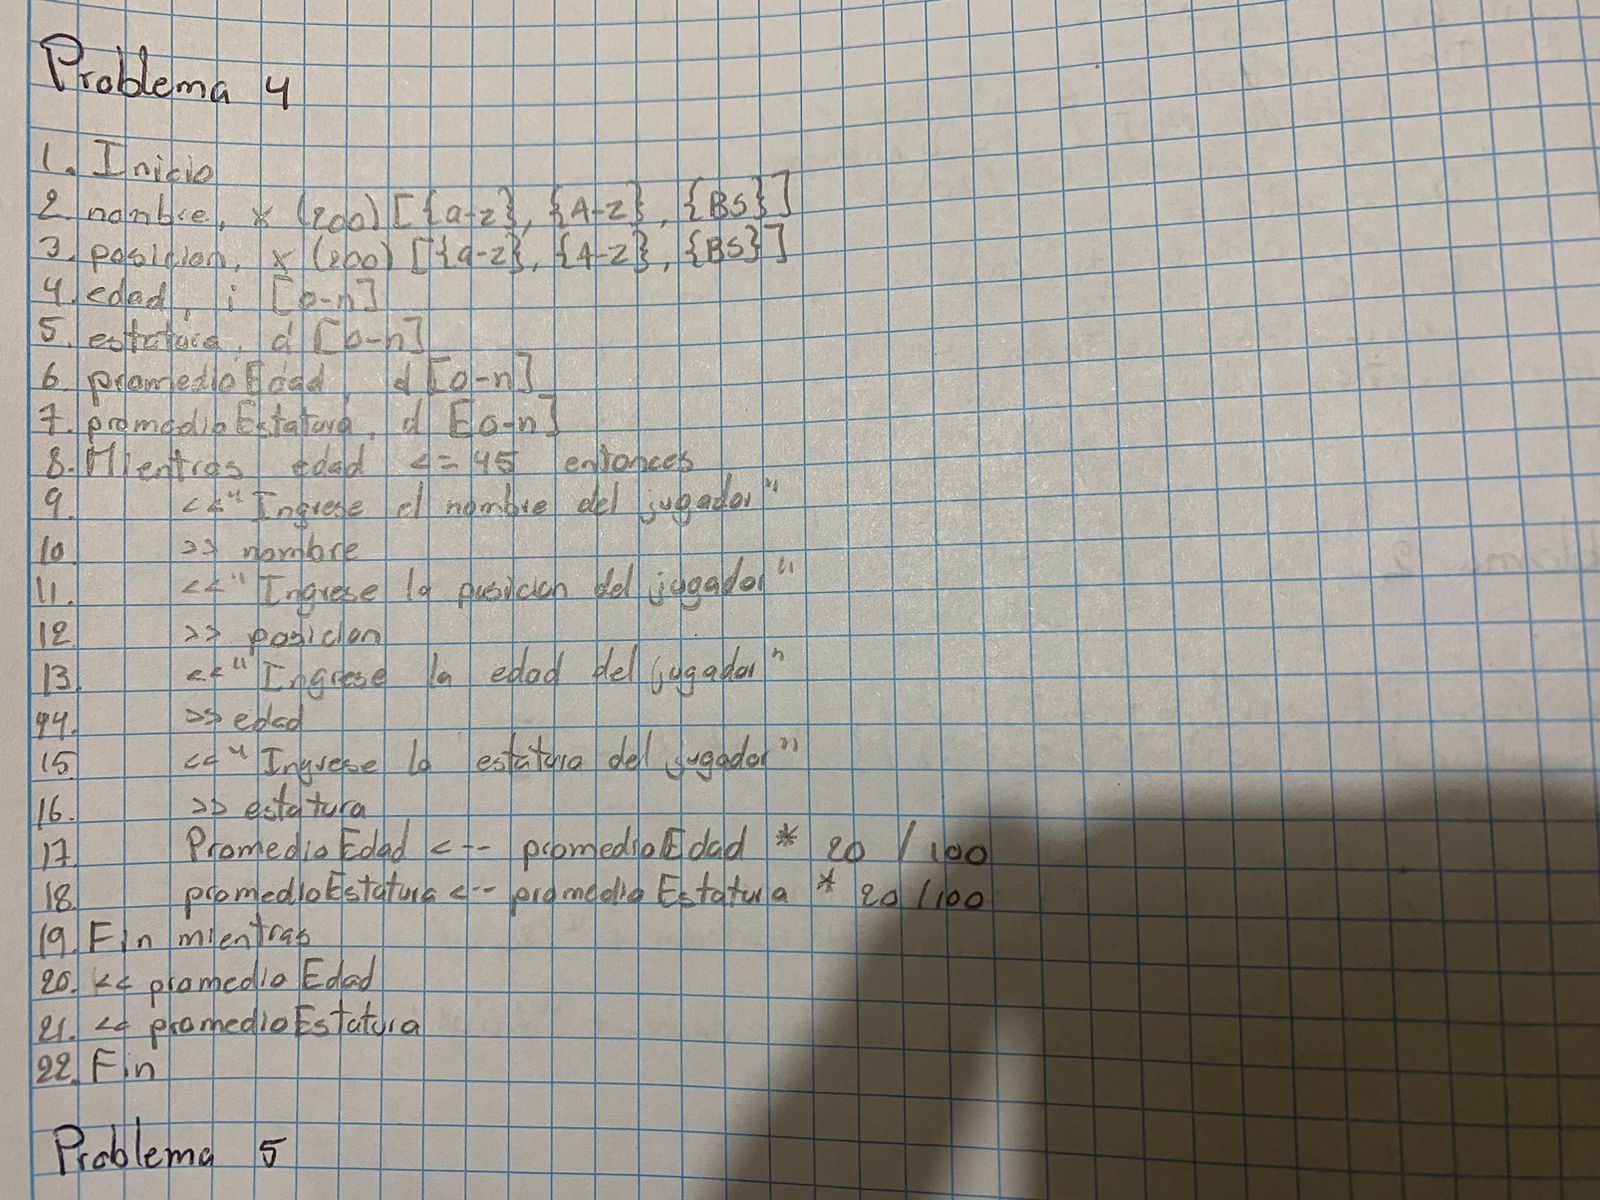 Problema 4
1. Inicio
2. nombre, x (200) [{a-z}, {A-Z}, {BS}]
3. posicion, x (200) [{a-z}, {A-Z}, {BS}]
4. edad, i [0-n]
5. estatura, d [0-n]
6. promedioEdad, d [0-n]
7. promedioEstatura, d [0-n]
8. Mientras edad <= 45 entonces
9. <<"Ingrese el nombre del jugador"
10 >> nombre
11. <<"Ingrese la posicion del jugador"
12 >> posicion
13. <<"Ingrese la edad del jugador"
14. >> edad
15 <<"Ingrese la estatura del jugador"
16. >> estatura
17 PromedioEdad <-- promedioEdad * 20 / 100
18. promedioEstatura <-- promedioEstatura * 20 /100
19. Fin mientras
20. << promedioEdad
21. << promedioEstatura
22. Fin
Problema 5